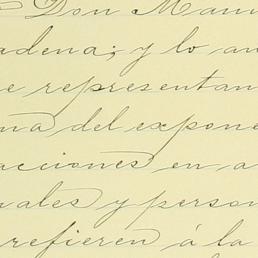 Don Manu
adena; y lo an
e representan
na del expone
acciones en a
nales y person
refieren á la